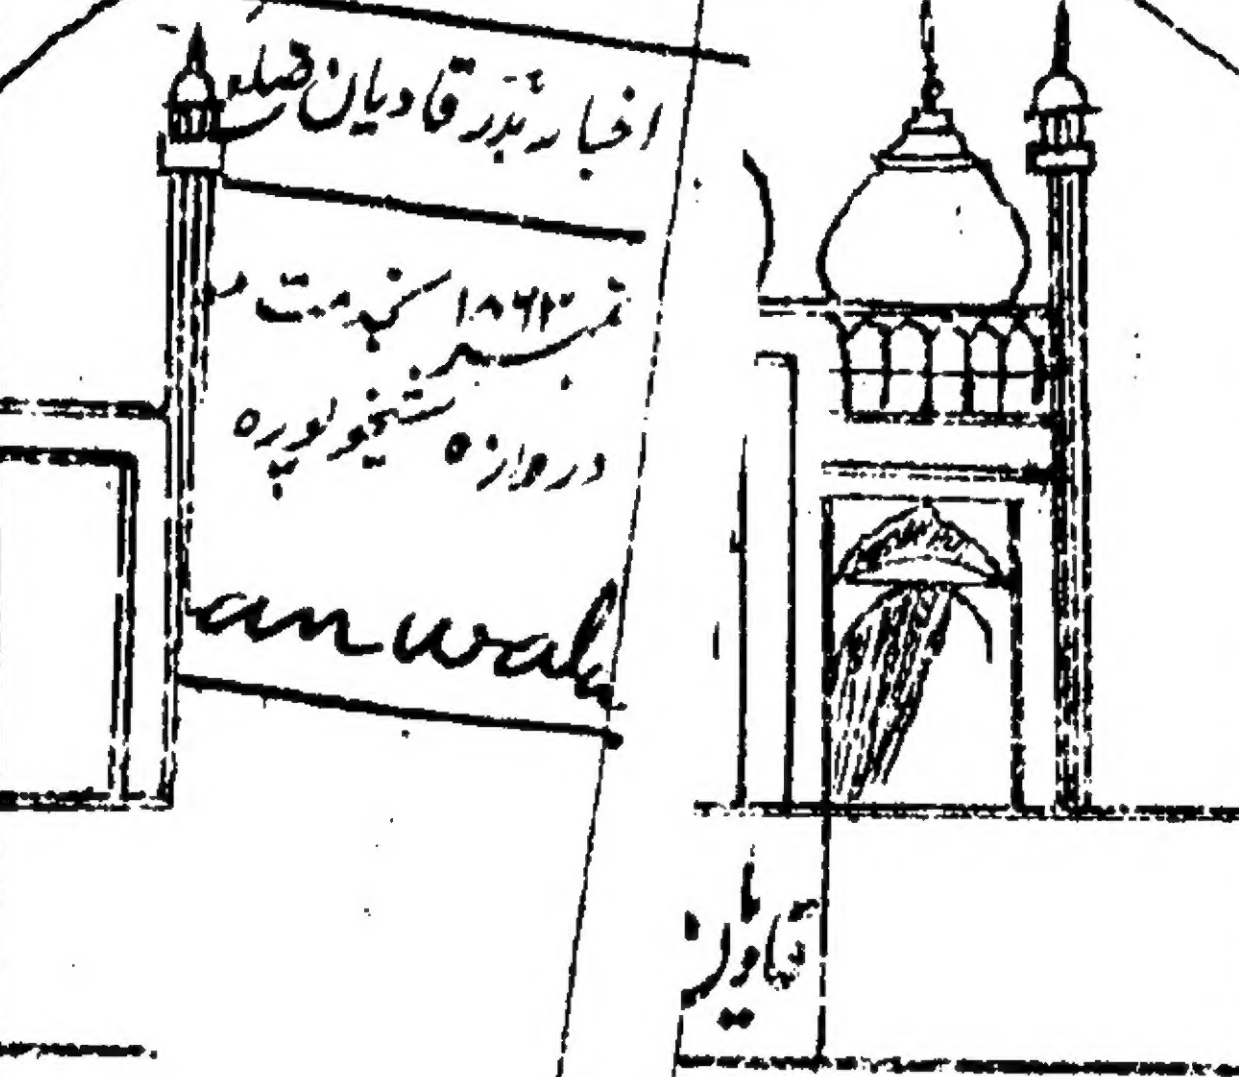 اخبار بدر قادیان ضلع
نمبر ۱۸۶۲ بخدمت
دروازہ شیخوپورہ
anwala
قادیان